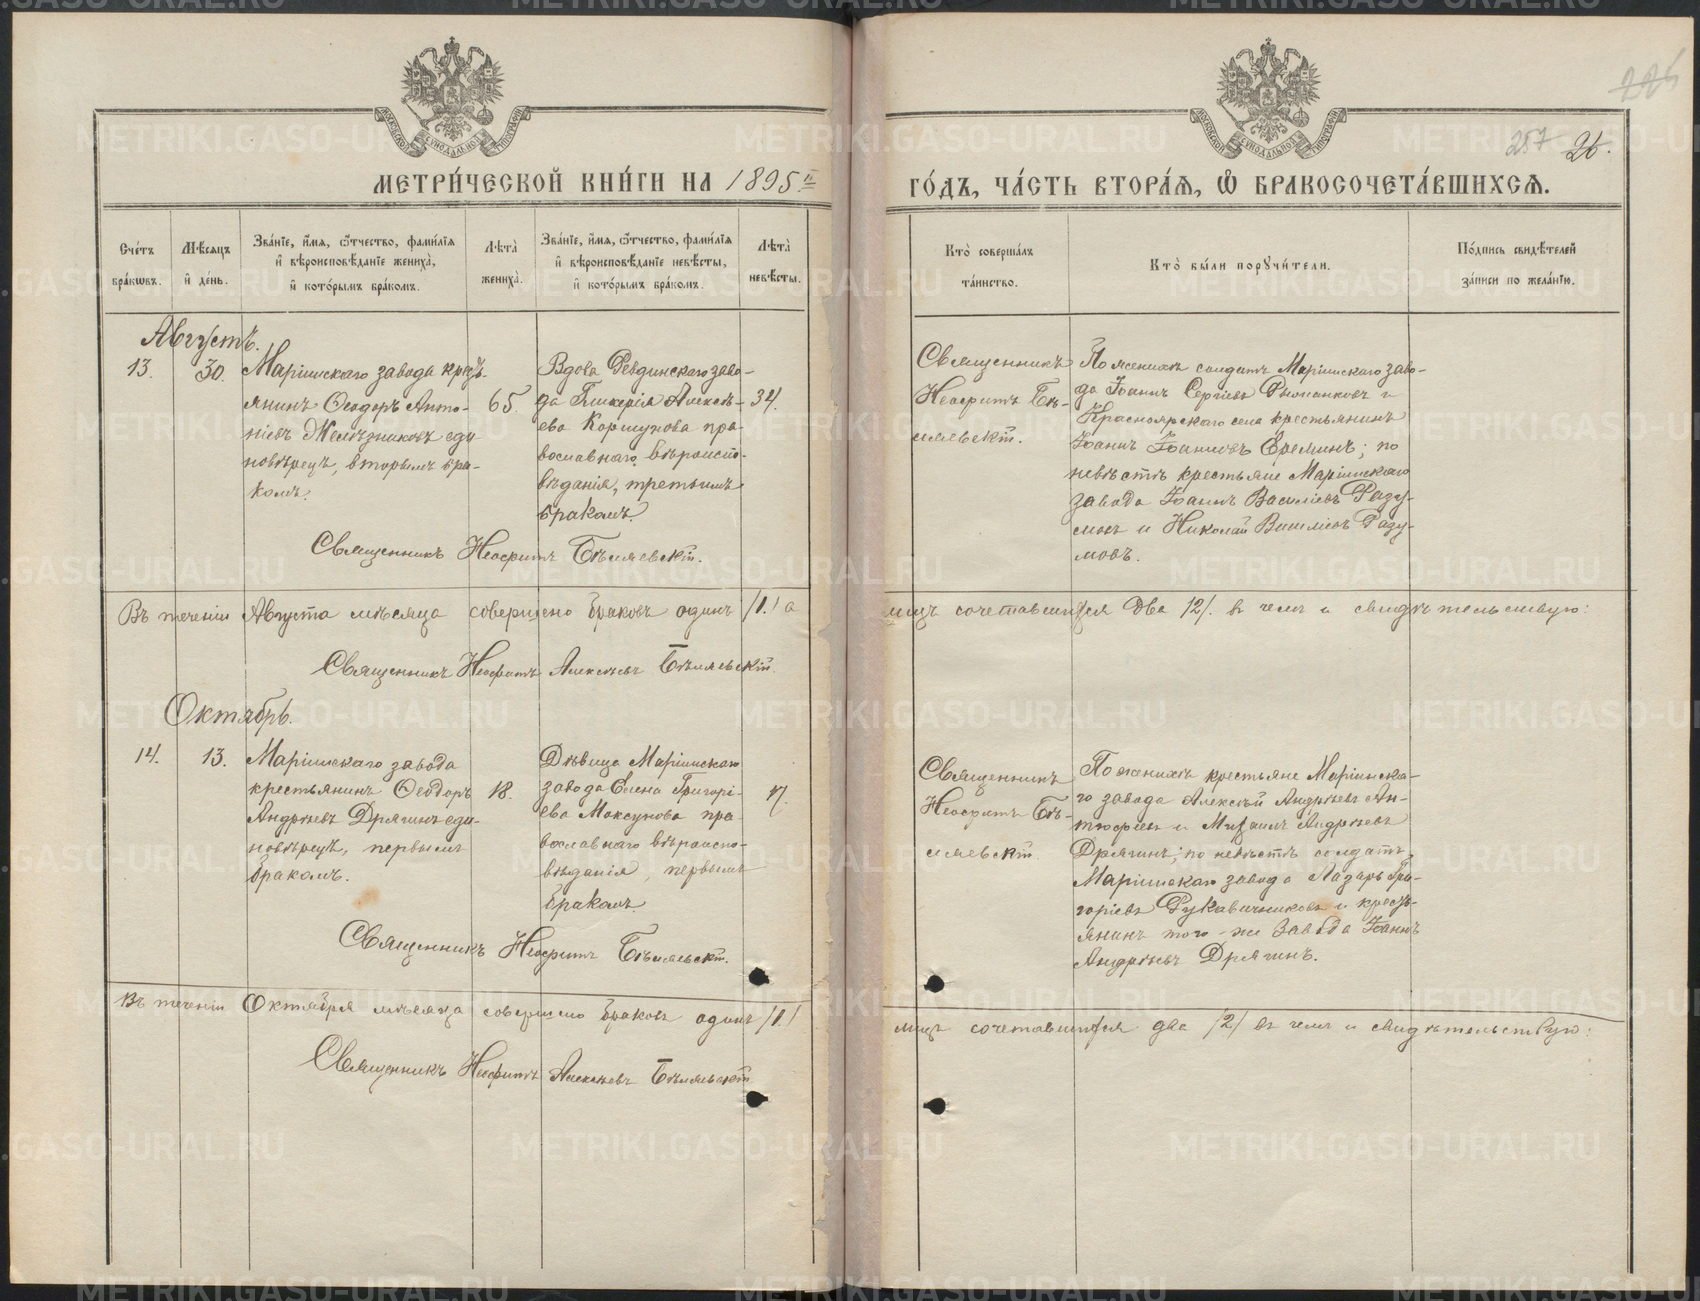 МЕТРИ́ЧЕСКОЙ КНИ́ГИ НА 1895й
ГО́ДЪ, ЧА́СТЬ ВТОРА́Я, Ѡ БРАКОСОЧЕТА́ВШИХСЯ.
257 26.
Сче́тъ бра́кѡвъ.
Мѣ́сяцъ и҆ де́нь.
Зва́нїе, и҆́мя, ѻ҆́тчество, фами́лїя и҆ вѣроисповѣ́данїе жениха̀, и҆ кото́рымъ бра́комъ.
Лѣта̀ жениха̀.
Зва́нїе, и҆́мя, ѻ҆́тчество, фами́лїя и҆ вѣроисповѣ́данїе невѣ́сты, и҆ кото́рымъ бра́комъ.
Лѣта̀ невѣ́сты.
Кто̀ соверша́лъ та́инство.
Кто̀ бы́ли поручи́тели.
По́дпись свидѣ́телей за́писи по жела́нїю.
Августъ.
13.
30.
Маріинскаго завода кресть-
янинъ Ѳеодоръ Анто-
ніевъ Желѣзниковъ еди-
новѣрецъ, вторымъ бра-
комъ.
65.
Вдова Ревдинскаго заво-
да Гликерія Алексѣ-
ева Коршунова пра-
вославнаго вѣроиспо-
вѣданія, третьимъ
бракомъ.
34.
Священникъ
Неофитъ Бѣ-
ляевскій.
По женихѣ солдатъ Маріинскаго заво-
да Іоаннъ Сергіевъ и
Красноярскаго села крестьянинъ
Іоаннъ Іоанновъ Ереминъ; по
невѣстѣ крестьяне Маріинскаго
завода Іоаннъ Василіевъ Разу-
мовъ и Николай Василіевъ Разу-
мовъ.
Священникъ Неофитъ Бѣляевскій.
Въ теченіи Августа мѣсяца совершено браковъ одинъ /1./ а
лицъ сочетавшихся два /2/. въ чемъ и свидѣтельствую:
Священникъ Неофитъ Алексѣевъ Бѣляевскій.
Октябрь.
14.
13.
Маріинскаго завода
крестьянинъ Ѳеодоръ
Андрѣевъ Дрягинъ еди-
новѣрецъ, первымъ
бракомъ.
18.
Дѣвица Маріинскаго
завода Елена Григорі-
ева Максунова пра-
вославнаго вѣроиспо-
вѣданія, первымъ
бракомъ.
17.
Священникъ
Неофитъ Бѣ-
ляевскій.
По женихѣ крестьяне Маріинска-
го завода Алексѣй Андрѣевъ Ан-
тюфеевъ и Михаилъ Андрѣевъ
Дрягинъ; по невѣстѣ солдатъ
Маріинскаго завода Лазарь Гри-
горіевъ Рукавичниковъ и кресть-
янинъ того-же завода Іоаннъ
Андрѣевъ Дрягинъ.
Священникъ Неофитъ Бѣляевскій.
Въ теченіи Октября мѣсяца совершено браковъ одинъ /1./
лицъ сочетавшихся два /2/ въ чемъ и свидѣтельствую:
Священникъ Неофитъ Алексѣевъ Бѣляевскій
METRIKI.GASO-URAL.RU